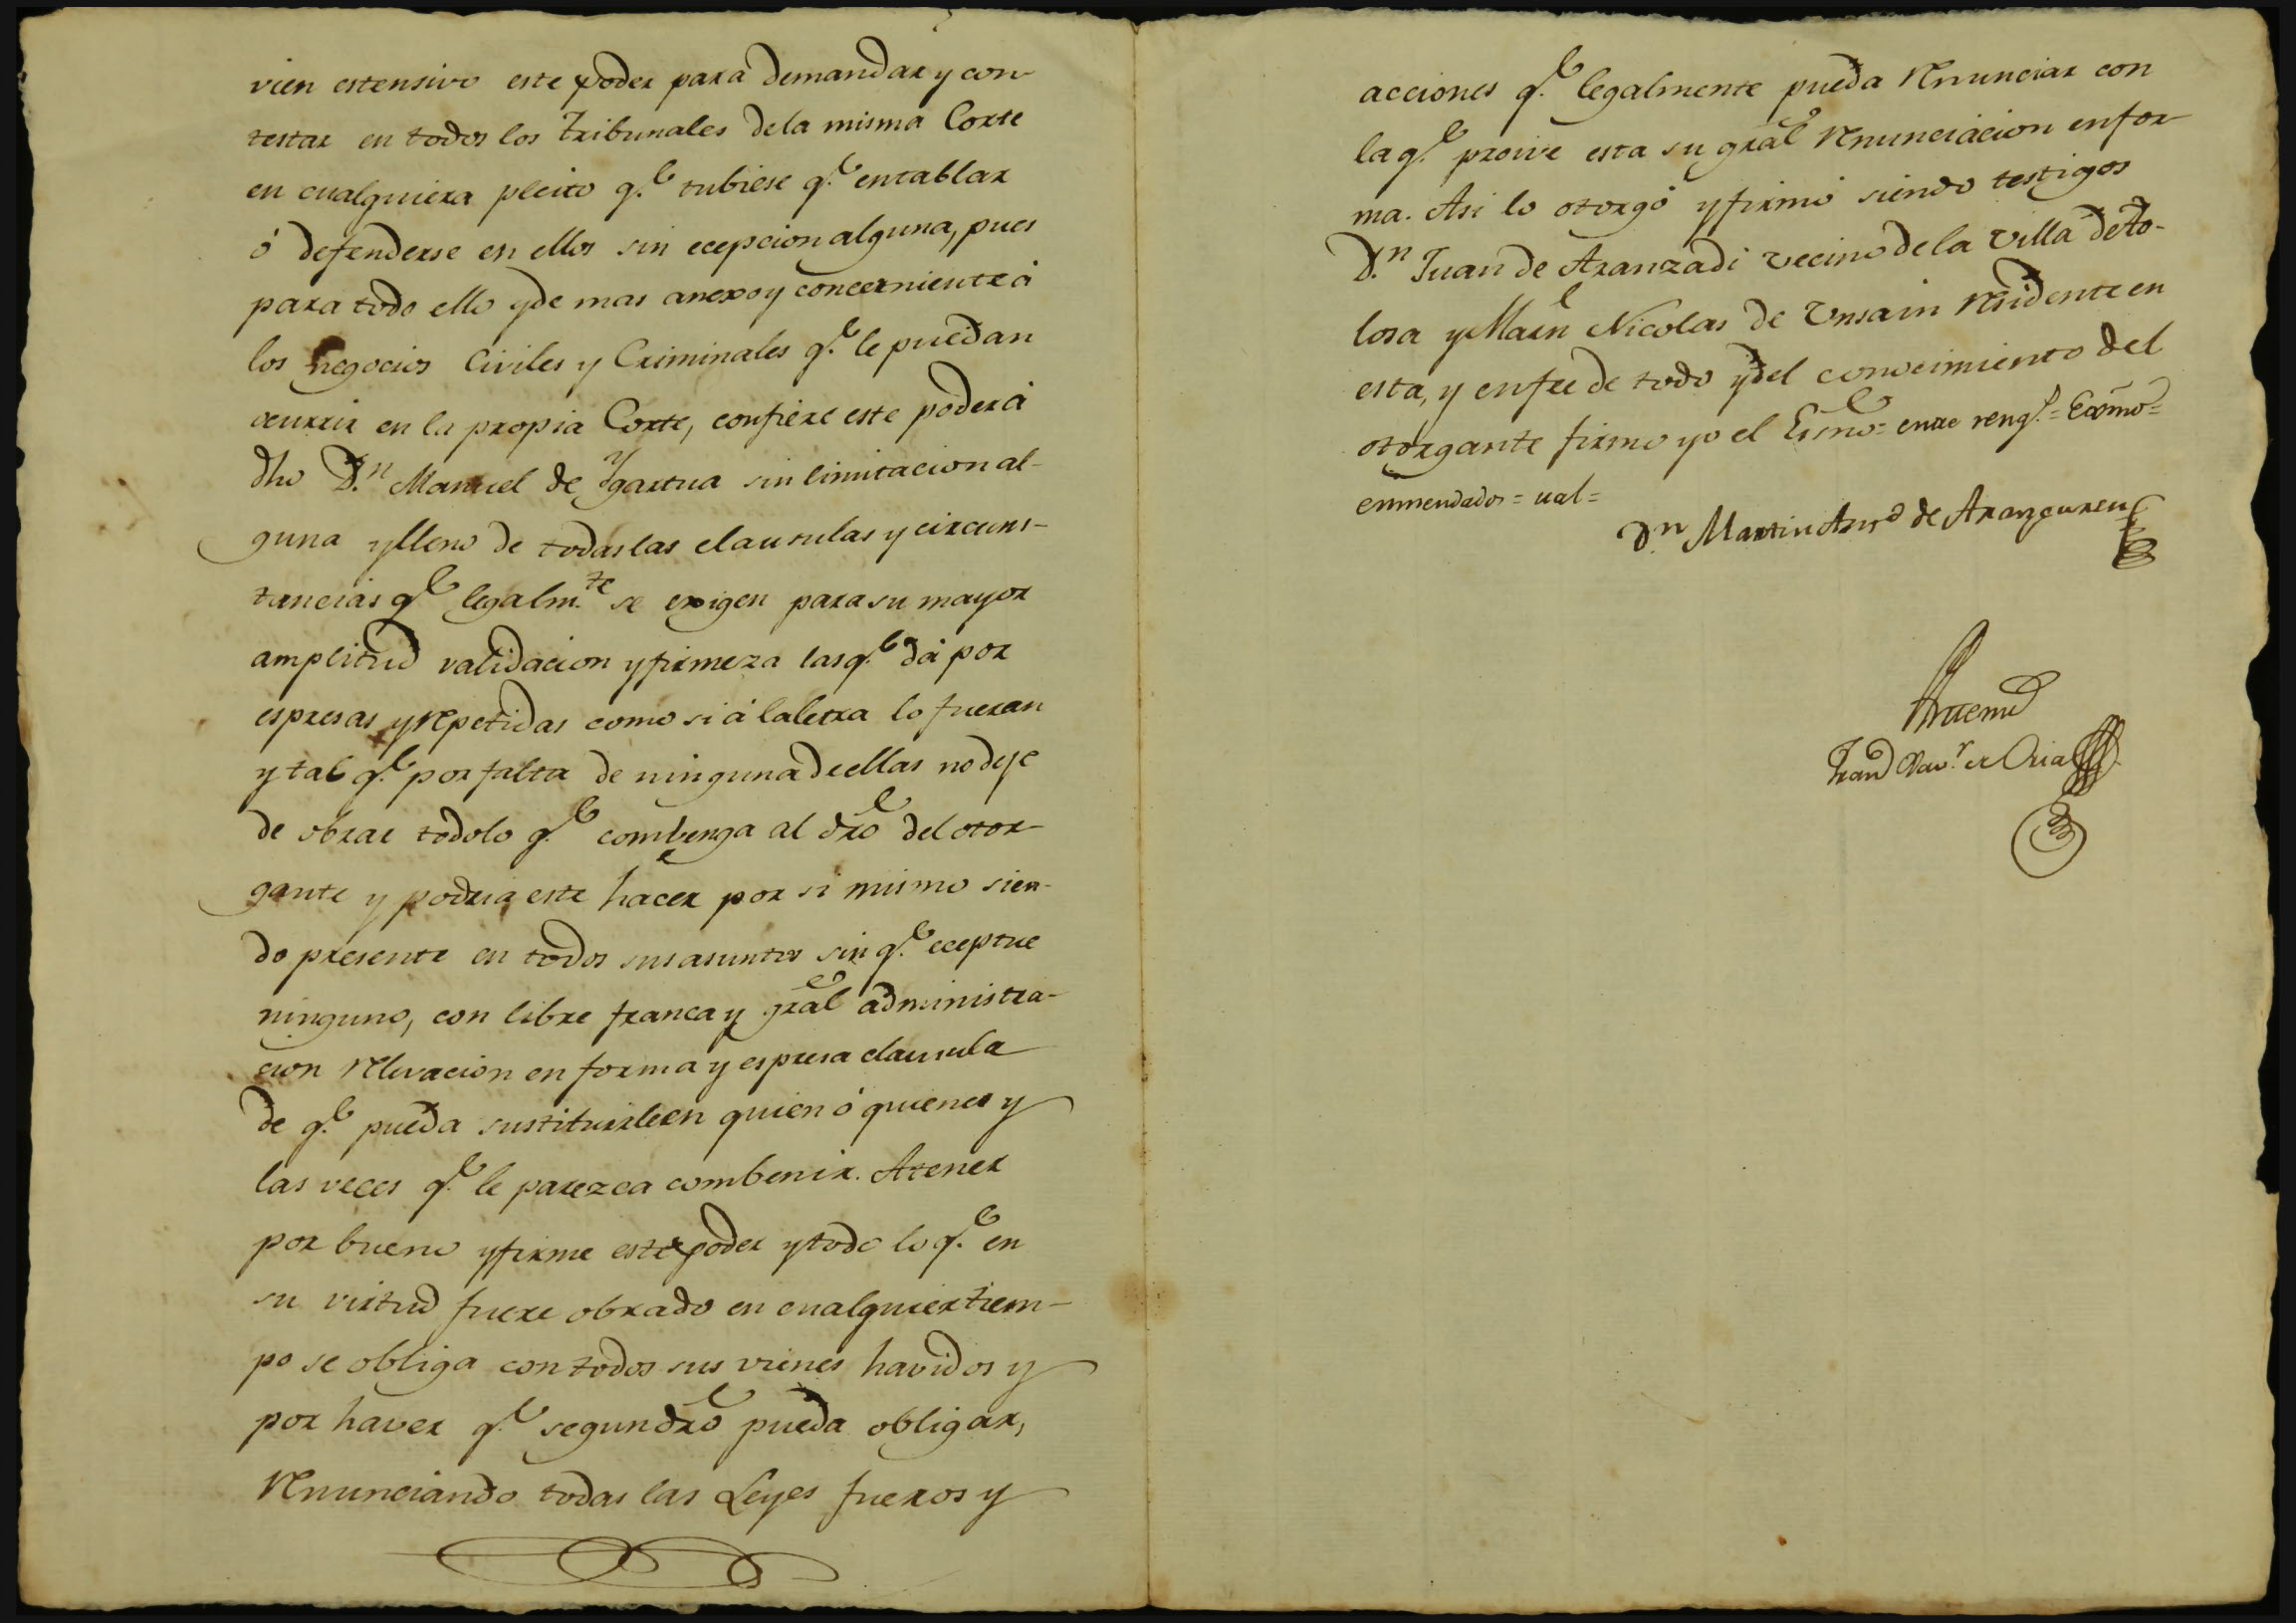 vien estensivo este poder para demandar y con-
testar en todos los tribunales dela misma Corte
en cualquiera pleito q.e tubiese q.e entablar
ó defenderse en ellos sin ecepcion alguna, pues
para todo ello y de mas anexo y concerniente á
los negocios Civiles y Criminales q.e le puedan
ocurrir en la propia Corte, confiere este poder á
dho D.n Manuel de Ygartua sin limitacion al-
guna y lleno de todas las clausulas y circuns-
tancias q.e legalm.te se exigen para su mayor
amplitud validacion y firmeza las q.e dá por
espresas y repetidas como si á la letra lo fueran
y tal q.e por falta de ninguna de ellas no deje
de obrar todo lo q.e combenga al dro del otor-
gante y podria este hacer por si mismo sien-
do presente en todos sus asuntos sin q.e eceptue
ninguno, con libre franca y gral administra-
cion relevacion en forma y espresa clausula
de q.e pueda sustituirle en quien ó quienes y
las veces q.e le parezca combenir. A tener
por bueno y firme este poder y todo lo q.e en
su virtud fuere obrado en cualquier tiem-
po se obliga con todos sus vienes havidos y
por haver q.e segun dro pueda obligar,
renunciando todas las Leyes fueros y
acciones q.e legalmente pueda renunciar con
la q.e proive esta su gral renunciacion en for-
ma. Asi lo otorgó y firmó siendo testigos
D.n Juan de Aranzadi vecino de la Villa de To-
losa y Marn Nicolas de Unsain residente en
esta, y en fee de todo y del conocimiento del
otorgante firmo yo el Esno = entre reng.s = Exômo =
enmendados = ual =
D.n Martin Ant.o de Aranguren
Ante mi
Fran Xav.r de Oria